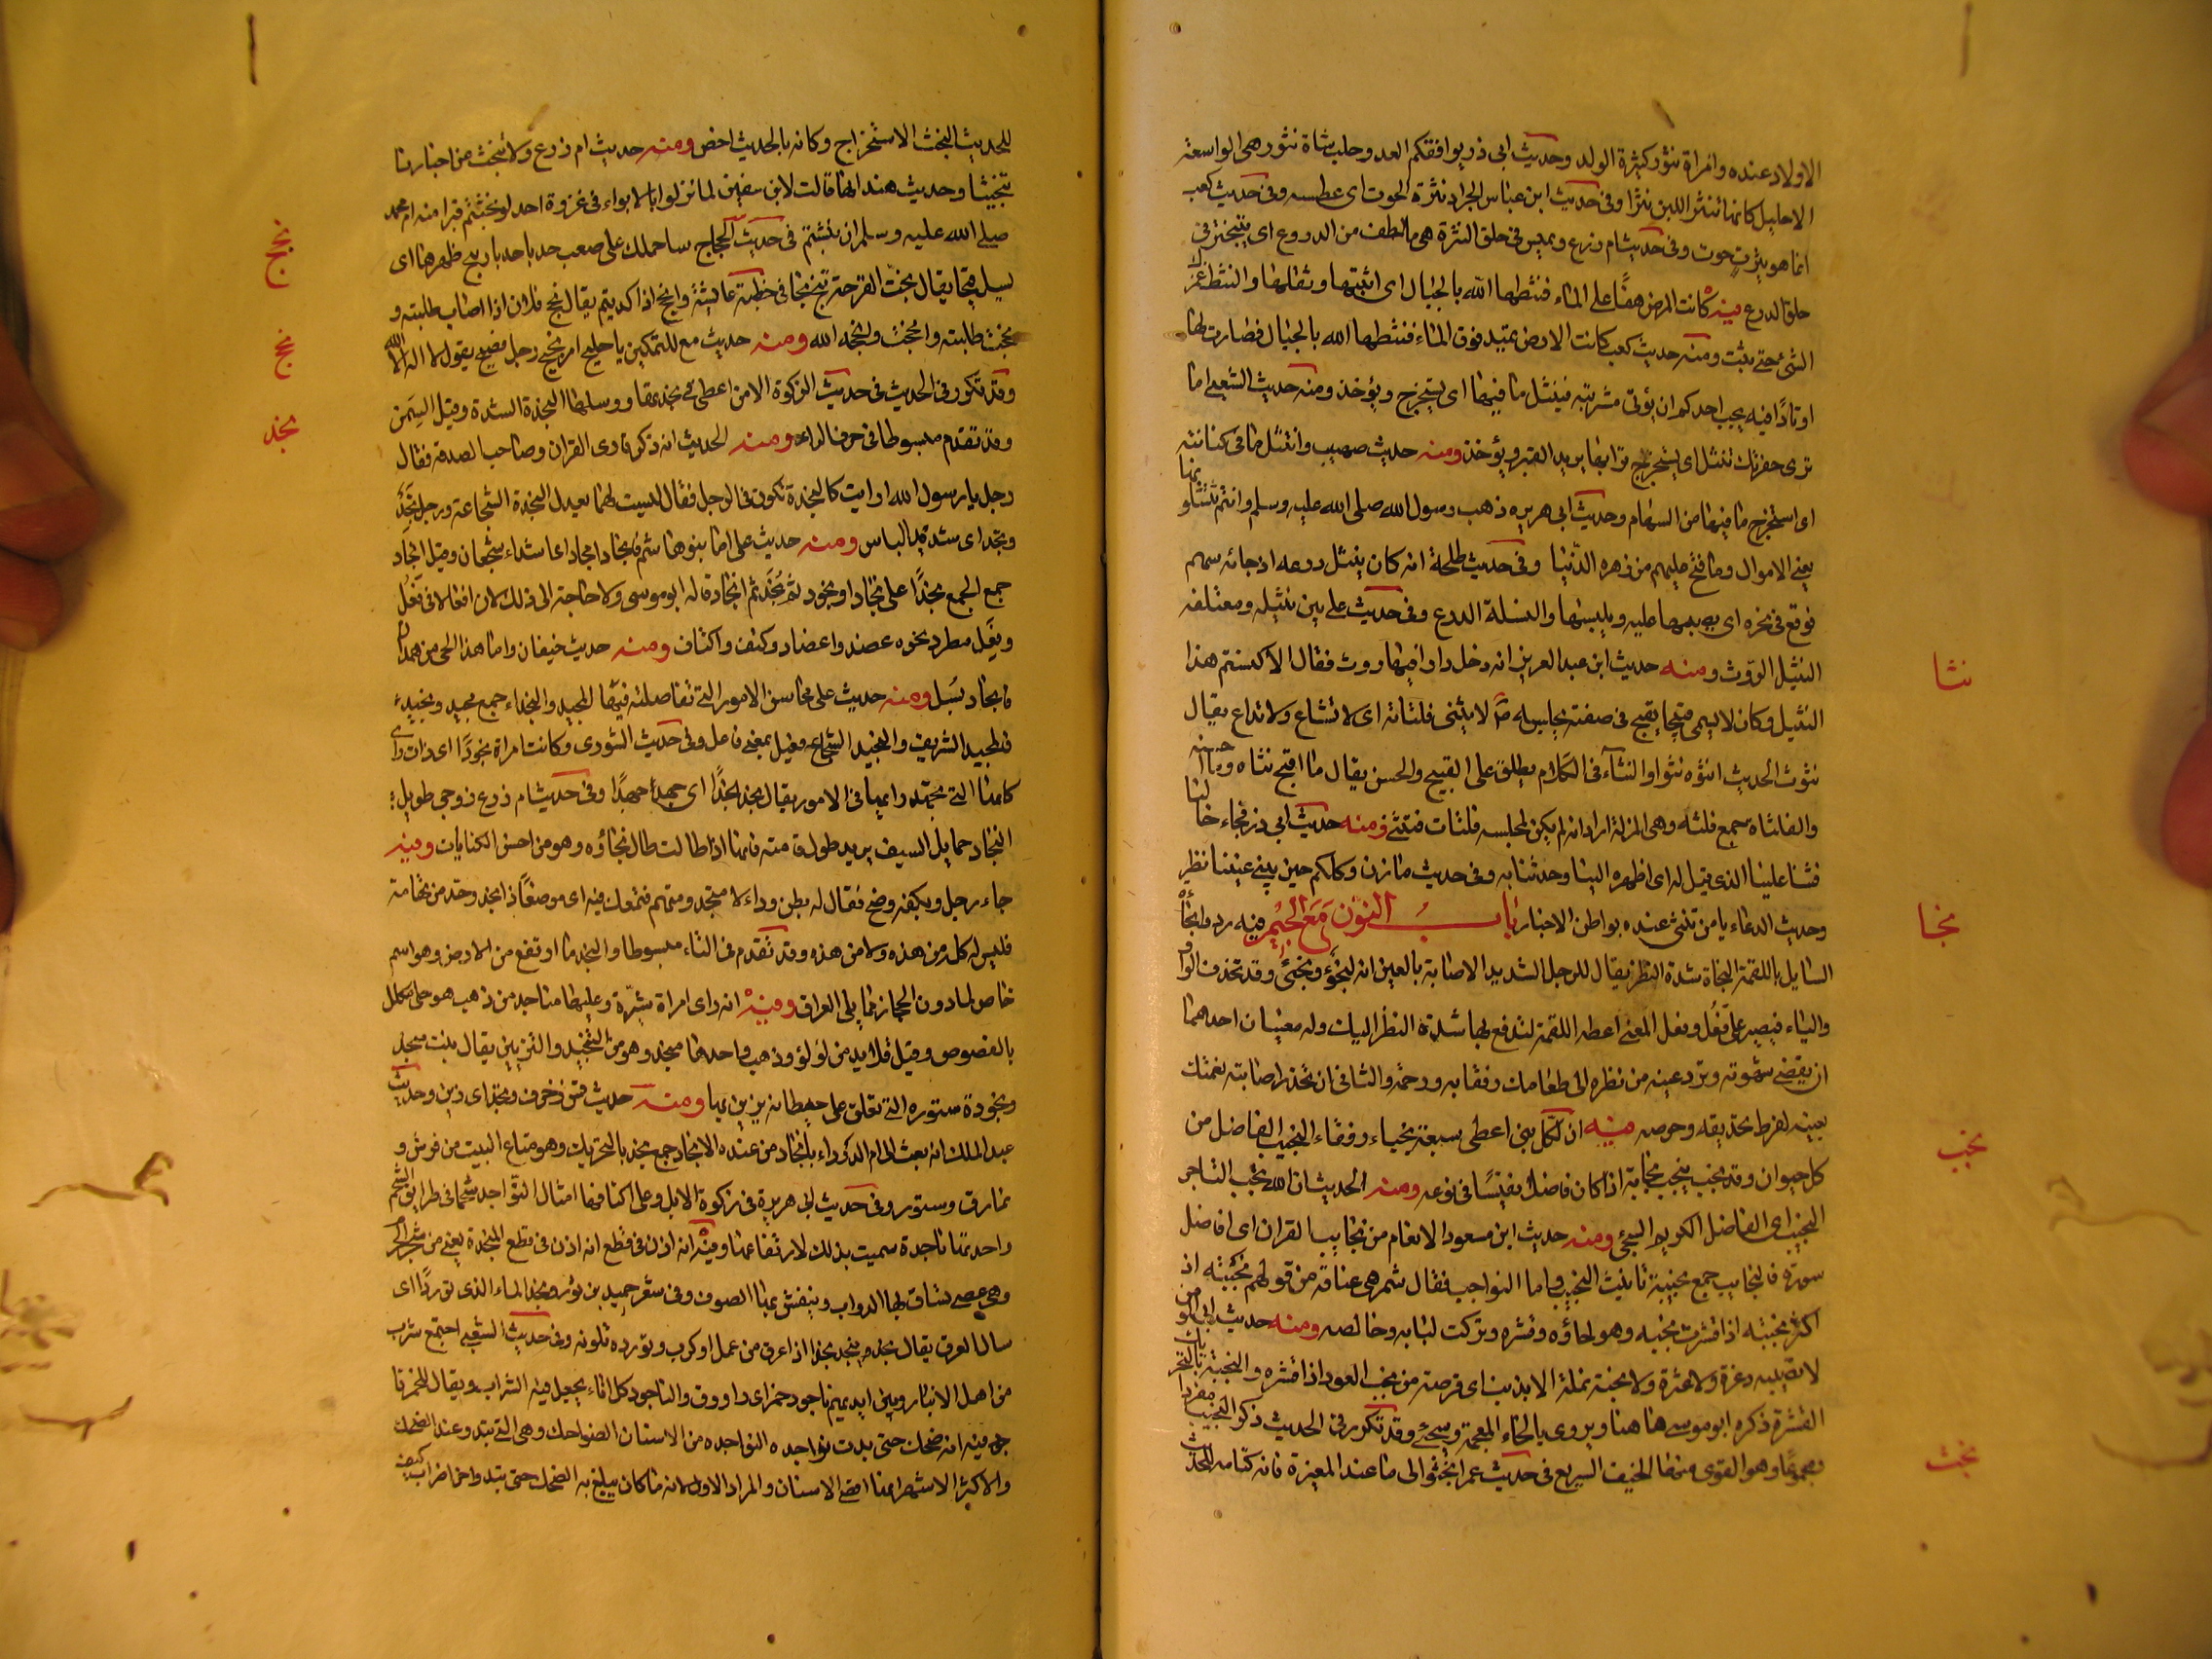 الاولاد عنده وامراة نثور كثيرة الولد وحديث ابى ذر يوافقكم العدو حلب شاة نثور هى الواسعة
الاحليل كانها تنثر اللبن نثرا وفى حديث ابن عباس الجراد نثرة الحوت اى عطسه وفى حديث كعب
انما هو نثرت حوت وفى حديث ام زرع ويميس فى حلق النثرة هى ما لطف من الدروع اى يتبختر فى
حلق الدرع فيه كانت الارض هفا على الماء فنثطها الله بالجبال اى اثبتها وثقلها والنثط غمزك
الشئ حتى يثبت ومنه حديث كعب كانت الارض تميد فوق الماء فنثطها الله بالجبال فصارت لها
اوتادا فيه يحب احدكم ان يؤتى مشربته فينثل ما فيها اى يستخرج ويؤخذ ومنه حديث الشعبى اما
ترى حفرتك تنثل اى يستخرج ترابها يريد القبر ويؤخذ ومنه حديث صهيب وانتثل ما فى كنانته
اى استخرج ما فيها من السهام وحديث ابى هريره ذهب رسول الله صلى الله عليه وسلم وانتم تنتثلونها
يعنى الاموال وما فتح عليهم من زهره الدنيا وفى حديث طلحة انه كان ينثل درعه اذ جائه سهم
فوقع فى نحره اى يصبها عليه ويلبسها والنثلة الدرع وفى حديث على بين نثيله ومعتلفه
النثيل الروث ومنه حديث ابن عبد العزيز انه دخل دارا فيها روث فقال الا كنستم هذا
النثيل وكان لا يسمى قبيحا بقبيح فى صفته مجلسه لا تنثى فلتاته اى لا تشاع ولا تذاع يقال
نثوت الحديث انثوه نثوا والنثاء فى الكلام يطلق على القبيح والحسن يقال ما اقبح نثاه وما احسنه
والفلتات جمع فلتة وهى الزلة اراد انه لم يكن لمجلسه فلتات فتنثى ومنه حديث ابى ذر فجاء خالنا
فنثا علينا الذى قيل له اى اظهره الينا وحدثنا به وفى حديث مازن وكلكم حين ينثى عيبنا نظر
وحديث الدعاء يا من تنثى عنده بواطن الاخبار باب النون مع الجيم فيه ردوا نجاة
السايل باللقمة النجاة شدة النظر يقال للرجل الشديد الاصابة بالعين انه لنجوء ونجئ وقد تحذف الواو
والياء فيصير على فعل وفعل المعنى اعطه اللقمة لتدفع بها شدة النظر اليك وله معنيان احدهما
ان يقضى شهوته وترد عينه من نظره الى طعامك رفقا به ورحمة والثانى ان تحذر اصابته نعمتك
بعينه لفرط تحديقه وحرصه فيه ان كل نبى اعطى سبعة نجباء رفقاء النجيب الفاضل من
كل حيوان وقد نجب ينجب نجابة اذا كان فاضلا نفيسا فى نوعه ومنه الحديث ان الله يحب التاجر
النجيب اى الفاضل الكريم السخى ومنه حديث ابن مسعود الانعام من نجايب القران اى افاضل
سوره فالنجايب جمع نجيبة تانيث النجيب واما النواجب فقال شمر هى عتاقه من قولهم نجبته اذ
اكثر نجبته اذا قشرت نجبه وهو لحاؤه وقشره وتركت لبابه وخالصه ومنه حديث ابى
لا تصيبه ذعرة ولا عثرة ولا نجبة نملة الا بذنب اى قرصة من نجب العود اذا قشره والنجبة بالتحريك
القشرة ذكره ابو موسى هاهنا ويروى بالخاء المعجمة وسيجئ وقد تكرر فى الحديث ذكر النجيب مفردا
ومجموعا وهو القوى منها الخفيف السريع فى حديث عمر انجثوا الى ما عند المغيرة فانه كتامة للحديث
نثا
نجا
نجب
نجث
للحديث النجث الاستخراج وكانه بالحديث اخص ومنه حديث ام زرع ولا تنجث من اخبارنا
تنجيثا وحديث هند انها قالت لابى سفين لما نزلوا بالابواء فى غزوة احد لو نجثتم قبر امنة ام محمد
صلى الله عليه وسلم ان ينبش فى حديث الحجاج ساحملك على صعب حدباء حدبار ينج ظهرها اى
يسيل قيحا يقال نجت القرحة تنج نجا فى خطبة عايشة وانجح اذا كديتم يقال نجح فلان اذا اصاب طلبته و
نجحت طلبته وانجحت وانجحه الله ومنه حديث مع المتمكين يا جليح امر نجيح رجل فصيح يقول لا اله الا الله
وقد تكرر فى الحديث فى حديث الزكوة الا من اعطى فى نجدتها ورسلها النجدة الشدة وقيل السمن
وقد تقدم مبسوطا فى حرف الراء ومنه الحديث انه ذكر قارى القران وصاحب الصدقة فقال
رجل يا رسول الله ارايت كالنجدة تكون فى الرجل فقال ليست لهما بعدل النجدة الشجاعة ورجل نجد
ونجد اى شديد الباس ومنه حديث على اما بنو هاشم فانجاد امجاد اى اشداء شجعان وقيل انجاد
جمع الجمع نجدا على نجاد او نجود ثم نجد ثم انجاد قاله ابو موسى ولا حاجة الى ذلك لان افعالا فى فعل
وفعل مطرد نحوه عضد واعضاد وكتف واكتاف ومنه حديث خيفان واما هذا الحى من همدان
فانجاد بسل ومنه حديث على محاسن الامور التى تفاضلت فيها المجيد والنجداء جمع مجيد ونجيد
فالمجيد الشريف والنجيد الشجاع فعيل بمعنى فاعل وفى حديث الشورى وكانت امراة نجودا اى ذات راى
كانها التى تجهد رايها فى الامور يقال نجد نجدا اى جهد جهدا وفى حديث ام زرع زوجى طويل
النجاد حمايل السيف يريد طول قامته فانها اذا طالت طال نجاده وهو من احسن الكنايات وفيه
جاء رجل وبكفه وضح فقال له بطن واد لا منجد ومتهم فتمعك فيه اى موضعا ذا نجد وحد من تهامة
فليس له كل من هذه ولا من هذه وقد تقدم فى التاء مبسوطا والنجد ما ارتفع من الارض وهو اسم
خاص لما دون الحجاز مما يلى العراق وفيه انه راى امراة شيرة وعليها مناجد من ذهب هو حلى مكلل
بالفصوص وقيل قلايد من لؤلؤ وذهب واحدها منجد وهو من التنجيد والتزيين يقال بيت منجد
ونجوده ستوره التى تعلق على حيطانه يزين بها ومنه حديث قس زخرف ونجد اى زين وحديث
عبد الملك انه بعث الى ام الدرداء بانجاد من عنده الانجاد جمع نجد بالتحريك وهو متاع البيت من فرش و
نمارق وستور وفى حديث ابى هريرة فى زكوة الابل وعلى اكتافها امثال النواجد شحما فى طرايق الشحم
واحدتها ناجدة سميت بذلك لارتفاعها وفيه انه اذن فى قطع انه اذن فى قطع المنجدة يعنى من شجر الحرم
وهى عصى تساق بها الدواب وينفش بها الصوف وفى شعر حميد بن ثور ونجد الماء الذى توردا اى
سال العرق يقال نجد ينجد نجدا اذا عرق من عمل او كرب وتورده تلونه وفى حديث الشعبى اجتمع شرب
من اهل الانبار وبين ايديهم ناجود خمر اى راووق والناجود كل اناء يجعل فيه الشراب ويقال للخمر نا
جود فيه انه ضحك حتى بدت نواجده النواجده من الاسنان الضواحك وهى التى تبدو عند الضحك
والاكثر الاشهر انها اقصى الاسنان والمراد الاول لانه ما كان يبلغ به الضحك حتى تبدو اخر اضراسه كيف
نجج
نجح
نجد